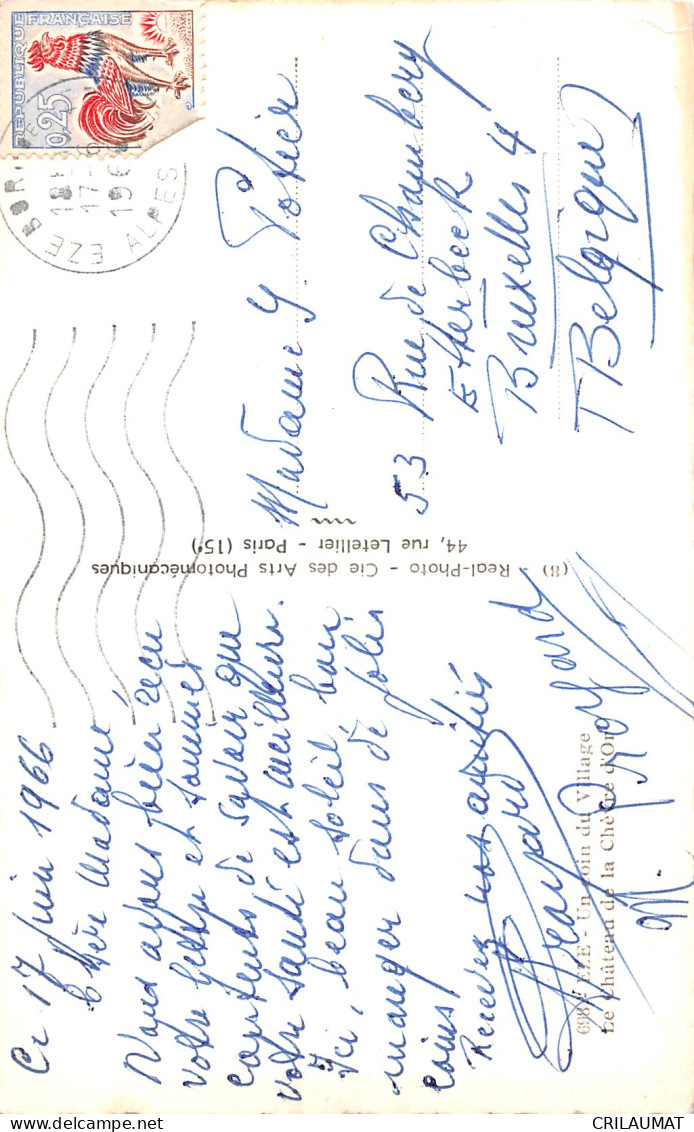 Ce 17 juin 1966
Chère Madame
Nous avons bien reçu
votre lettre et sommes
contents de savoir que
votre santé est meilleure.
Ici, beau soleil bon
manger dans de jolis
coins,
Recevez nos amitiés
M.
698 - EZE - Un coin du Village
Le Château de la Chèvre d'Or
(8) - Real-Photo - Cie des Arts Photomécaniques
44, rue Letellier - Paris (15e)
REPUBLIQUE FRANÇAISE
0,25
EZE BORD
18H
17-6
196
ALPES
Madame Y Potier
53 Rue de Chambery
Etterbeek
Bruxelles 4
Belgique
CRILAUMAT